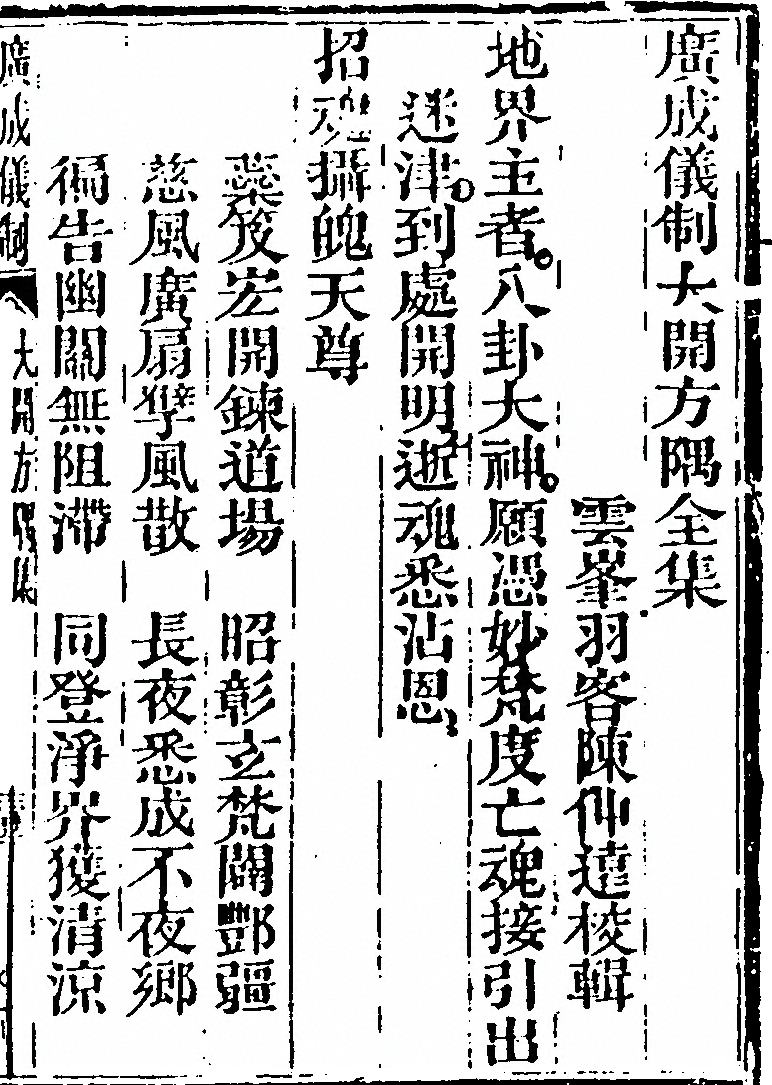 廣成儀制大開方隅全集
雲峯羽客陳仲達校輯
地界主者八卦大神願憑妙梵度亡魂接引出
迷津到處開明逝魂悉沾恩
招魂攝魄天尊
蘂笈宏開鍊道場　昭彰玄梵闢酆疆
慈風廣扇孽風散　長夜悉成不夜鄉
徧告幽關無阻滯　同登淨界獲清涼
廣成儀制　大開方隅集